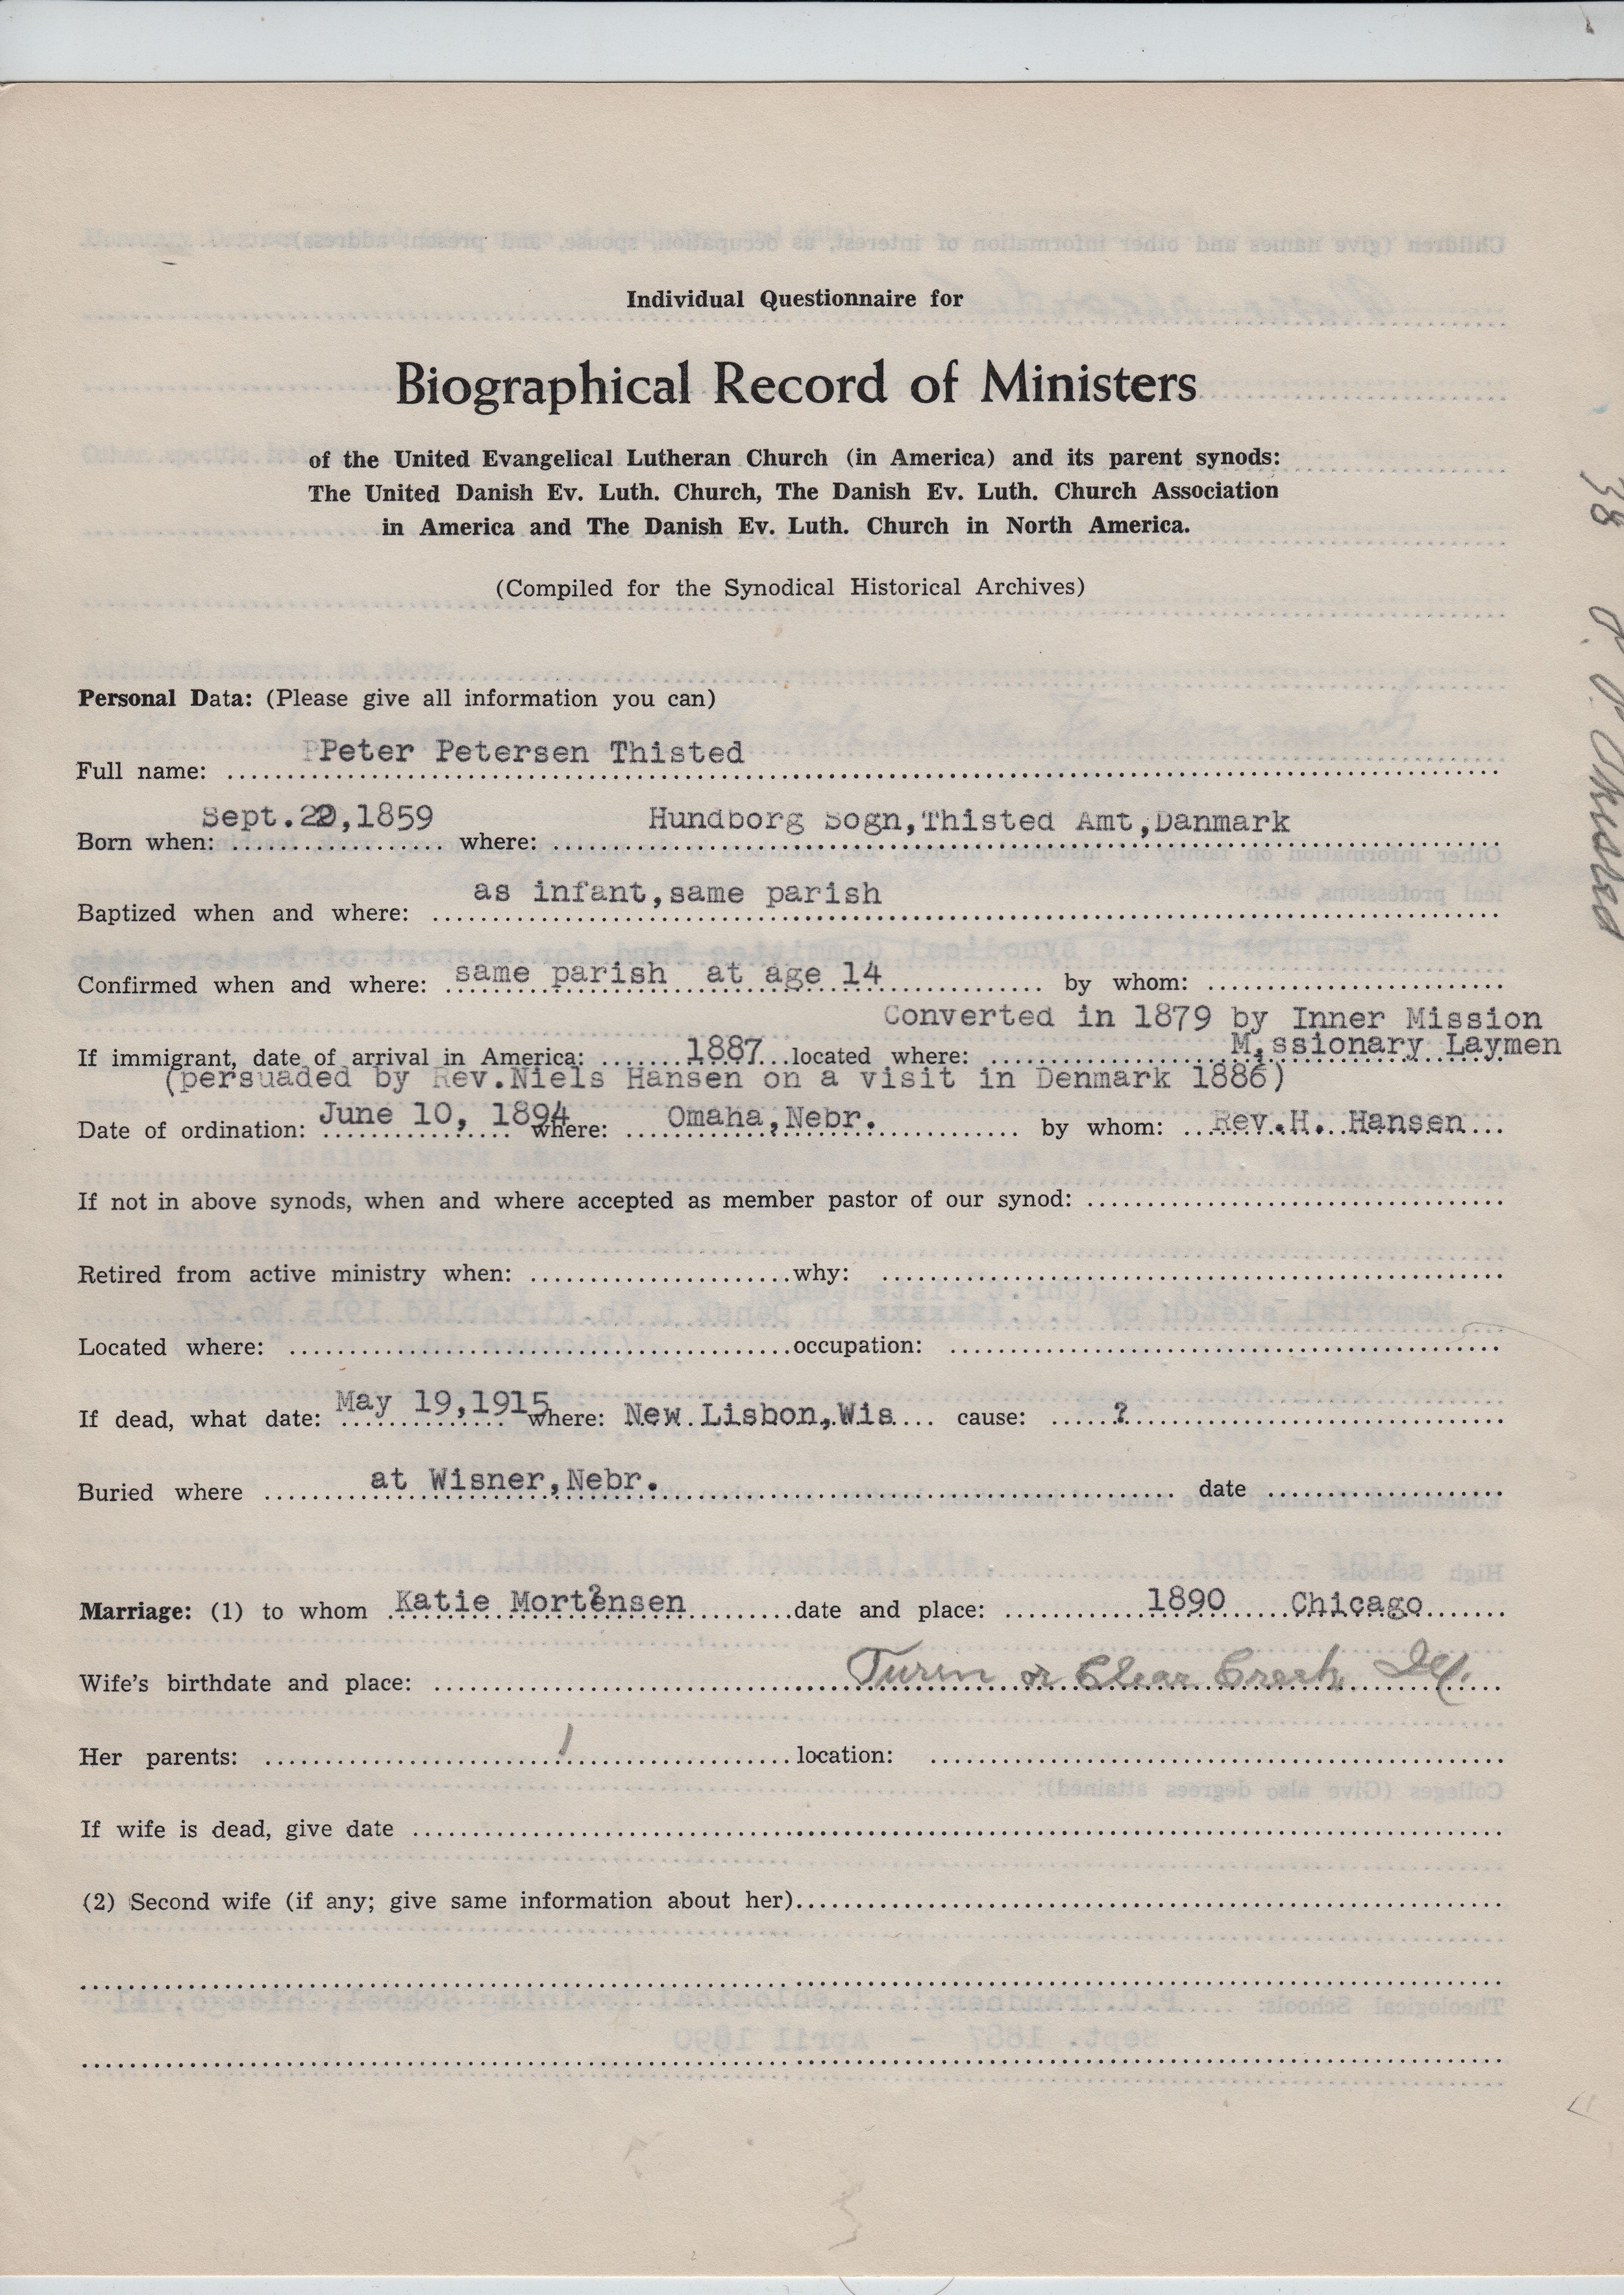 Individual Questionnaire for
Biographical Record of Ministers
of the United Evangelical Lutheran Church (in America) and its parent synods:
The United Danish Ev. Luth. Church, The Danish Ev. Luth. Church Association
in America and The Danish Ev. Luth. Church in North America.
(Compiled for the Synodical Historical Archives)
Personal Data: (Please give all information you can)
Full name: Peter Petersen Thisted
Born when: Sept.22,1859 where: Hundborg Sogn,Thisted Amt,Danmark
Baptized when and where: as infant,same parish
Confirmed when and where: same parish at age 14 by whom:
Converted in 1879 by Inner Mission
If immigrant, date of arrival in America: 1887 located where: Missionary Laymen
(persuaded by Rev.Niels Hansen on a visit in Denmark 1886)
Date of ordination: June 10, 1894 where: Omaha,Nebr. by whom: Rev.H. Hansen
If not in above synods, when and where accepted as member pastor of our synod:
Retired from active ministry when: why:
Located where: occupation:
If dead, what date: May 19,1915 where: New Lisbon,Wis cause: ?
Buried where at Wisner,Nebr. date
Marriage: (1) to whom Katie Mortensen date and place: 1890 Chicago
Wife's birthdate and place: Turin or Clear Creek, Ill.
Her parents: location:
If wife is dead, give date
(2) Second wife (if any; give same information about her)
38 P. P. Thisted